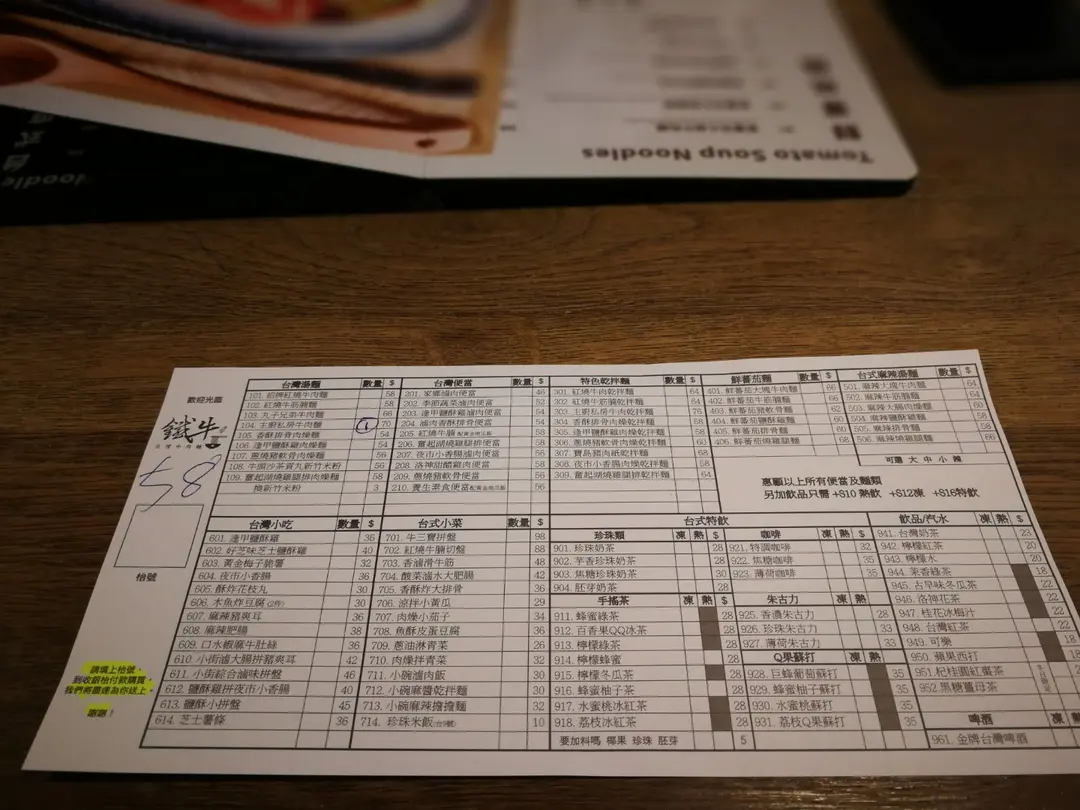 Tomato Soup Noodles
歡迎光臨
鐵牛
58
枱號
請填上枱號，
到收銀枱付款購買，
我們將盡速為你送上。
謝謝！
台灣湯麵 數量 $
101. 招牌紅燒牛肉麵 58
102. 紅燒牛筋腩麵 58
103. 丸子兄弟牛肉麵 66
104. 主廚私房牛肉麵 1 70
105. 香酥排骨肉燥麵 54
106. 逢甲鹽酥雞肉燥麵 54
107. 蔥燒豬軟骨肉燥麵 56
108. 牛頭沙茶貢丸新竹米粉 56
109. 奮起湖燒雞腿排肉燥麵 58
換新竹米粉 3
台灣便當 數量 $
201. 家鄉滷肉便當 46
202. 季節蔬菜滷肉便當 52
203. 逢甲鹽酥雞滷肉便當 54
204. 滷肉香酥排骨便當 54
205. 紅燒牛腩
206. 奮起湖燒雞腿排便當
207. 夜市小香腸滷肉便當
208. 洛神甜醋雞肉便當
209. 蔥燒豬軟骨便當 56
210. 養生素食便當 56
特色乾拌麵 數量 $
301. 紅燒牛肉乾拌麵 64
302. 紅燒牛筋腩乾拌麵 64
303. 主廚私房牛肉乾拌麵 76
304. 香酥排骨肉燥乾拌麵 58
305. 逢甲鹽酥雞肉燥乾拌麵 58
306. 蔥燒豬軟骨肉燥乾拌麵 60
307. 寶島豬肉紙乾拌麵 68
308. 夜市小香腸肉燥乾拌麵 58
309. 奮起湖燒雞腿排乾拌麵 64
鮮蕃茄麵 數量 $
401. 鮮蕃茄大塊牛肉麵 66
402. 鮮蕃茄牛筋腩麵 66
403. 鮮蕃茄豬軟骨麵 62
404. 鮮蕃茄鹽酥雞麵 60
405. 鮮蕃茄排骨麵
406. 鮮蕃茄燒雞腿麵
台式麻辣湯麵 數量 $
501. 麻辣大塊牛肉麵 64
502. 麻辣牛筋腩麵 64
503. 麻辣大腸肉燥麵
504. 麻辣鹽酥雞麵
505. 麻辣排骨麵
506. 麻辣燒雞腿麵 66
可選 大 中 小 辣
惠顧以上所有便當及麵類
另加飲品只需 +$10 熱飲 +$12凍 +$16特飲
台灣小吃 數量 $
601. 逢甲鹽酥雞 36
602. 好芝味芝士鹽酥雞 40
603. 黃金梅子脆薯 32
604. 夜市小香腸 36
605. 酥炸花枝丸 30
606. 木魚炸豆腐 (2件) 30
607. 麻辣豬爽耳 36
608. 麻辣肥腸 38
609. 口水椒麻牛肚絲 36
610. 小街滷大腸拼豬爽耳 42
611. 小街綜合滷味拼盤 46
612. 鹽酥雞拼夜市小香腸 40
613. 鹽酥小拼盤 45
614. 芝士薯條 36
台式小菜 數量 $
701. 牛三寶拼盤 98
702. 紅燒牛腩切盤 88
703. 香滷滑牛筋 48
704. 酸菜滷水大肥腸 42
705. 香酥炸大排骨 36
706. 涼拌小黃瓜 29
707. 肉燥小茄子 34
708. 魚酥皮蛋豆腐 36
709. 蔥油淋青菜 26
710. 肉燥拌青菜 32
711. 小碗滷肉飯 30
712. 小碗麻醬乾拌麵 30
713. 小碗麻辣擔擔麵 32
714. 珍珠米飯 10
台式特飲
珍珠類 凍 熱 $
901. 珍珠奶茶 28
902. 芋香珍珠奶茶 28
903. 焦糖珍珠奶茶 30
904. 胚芽奶茶 28
手搖茶 凍 熱
911. 蜂蜜綠茶 28
912. 百香果QQ冰茶 28
913. 檸檬綠茶 28
914. 檸檬蜂蜜 28
915. 檸檬冬瓜茶 28
916. 蜂蜜柚子茶 28
917. 水蜜桃冰紅茶 28
918. 荔枝冰紅茶 28
要加料嗎 椰果 珍珠 胚芽 5
咖啡 凍 熱 $
921. 特調咖啡 32
922. 焦糖咖啡 35
923. 薄荷咖啡 35
朱古力 凍 熱
925. 香濃朱古力 28
926. 珍珠朱古力 33
927. 薄荷朱古力 33
Q果蘇打 凍 熱
928. 巨蜂葡萄蘇打 35
929. 蜂蜜柚子蘇打 35
930. 水蜜桃蘇打 35
931. 荔枝Q果蘇打 35
飲品/汽水 凍 熱 $
941. 台灣奶茶 23
942. 檸檬紅茶 20
943. 檸檬水 20
944. 茉香綠茶 18
945. 古早味冬瓜茶 22
946. 洛神花茶 22
947. 桂花冰梅汁 22
948. 台灣紅茶
949. 可樂 18
950. 蘋果西打
951. 杞桂圓紅棗茶
952. 黑糖薑母茶
啤酒 凍
961. 金牌台灣啤酒